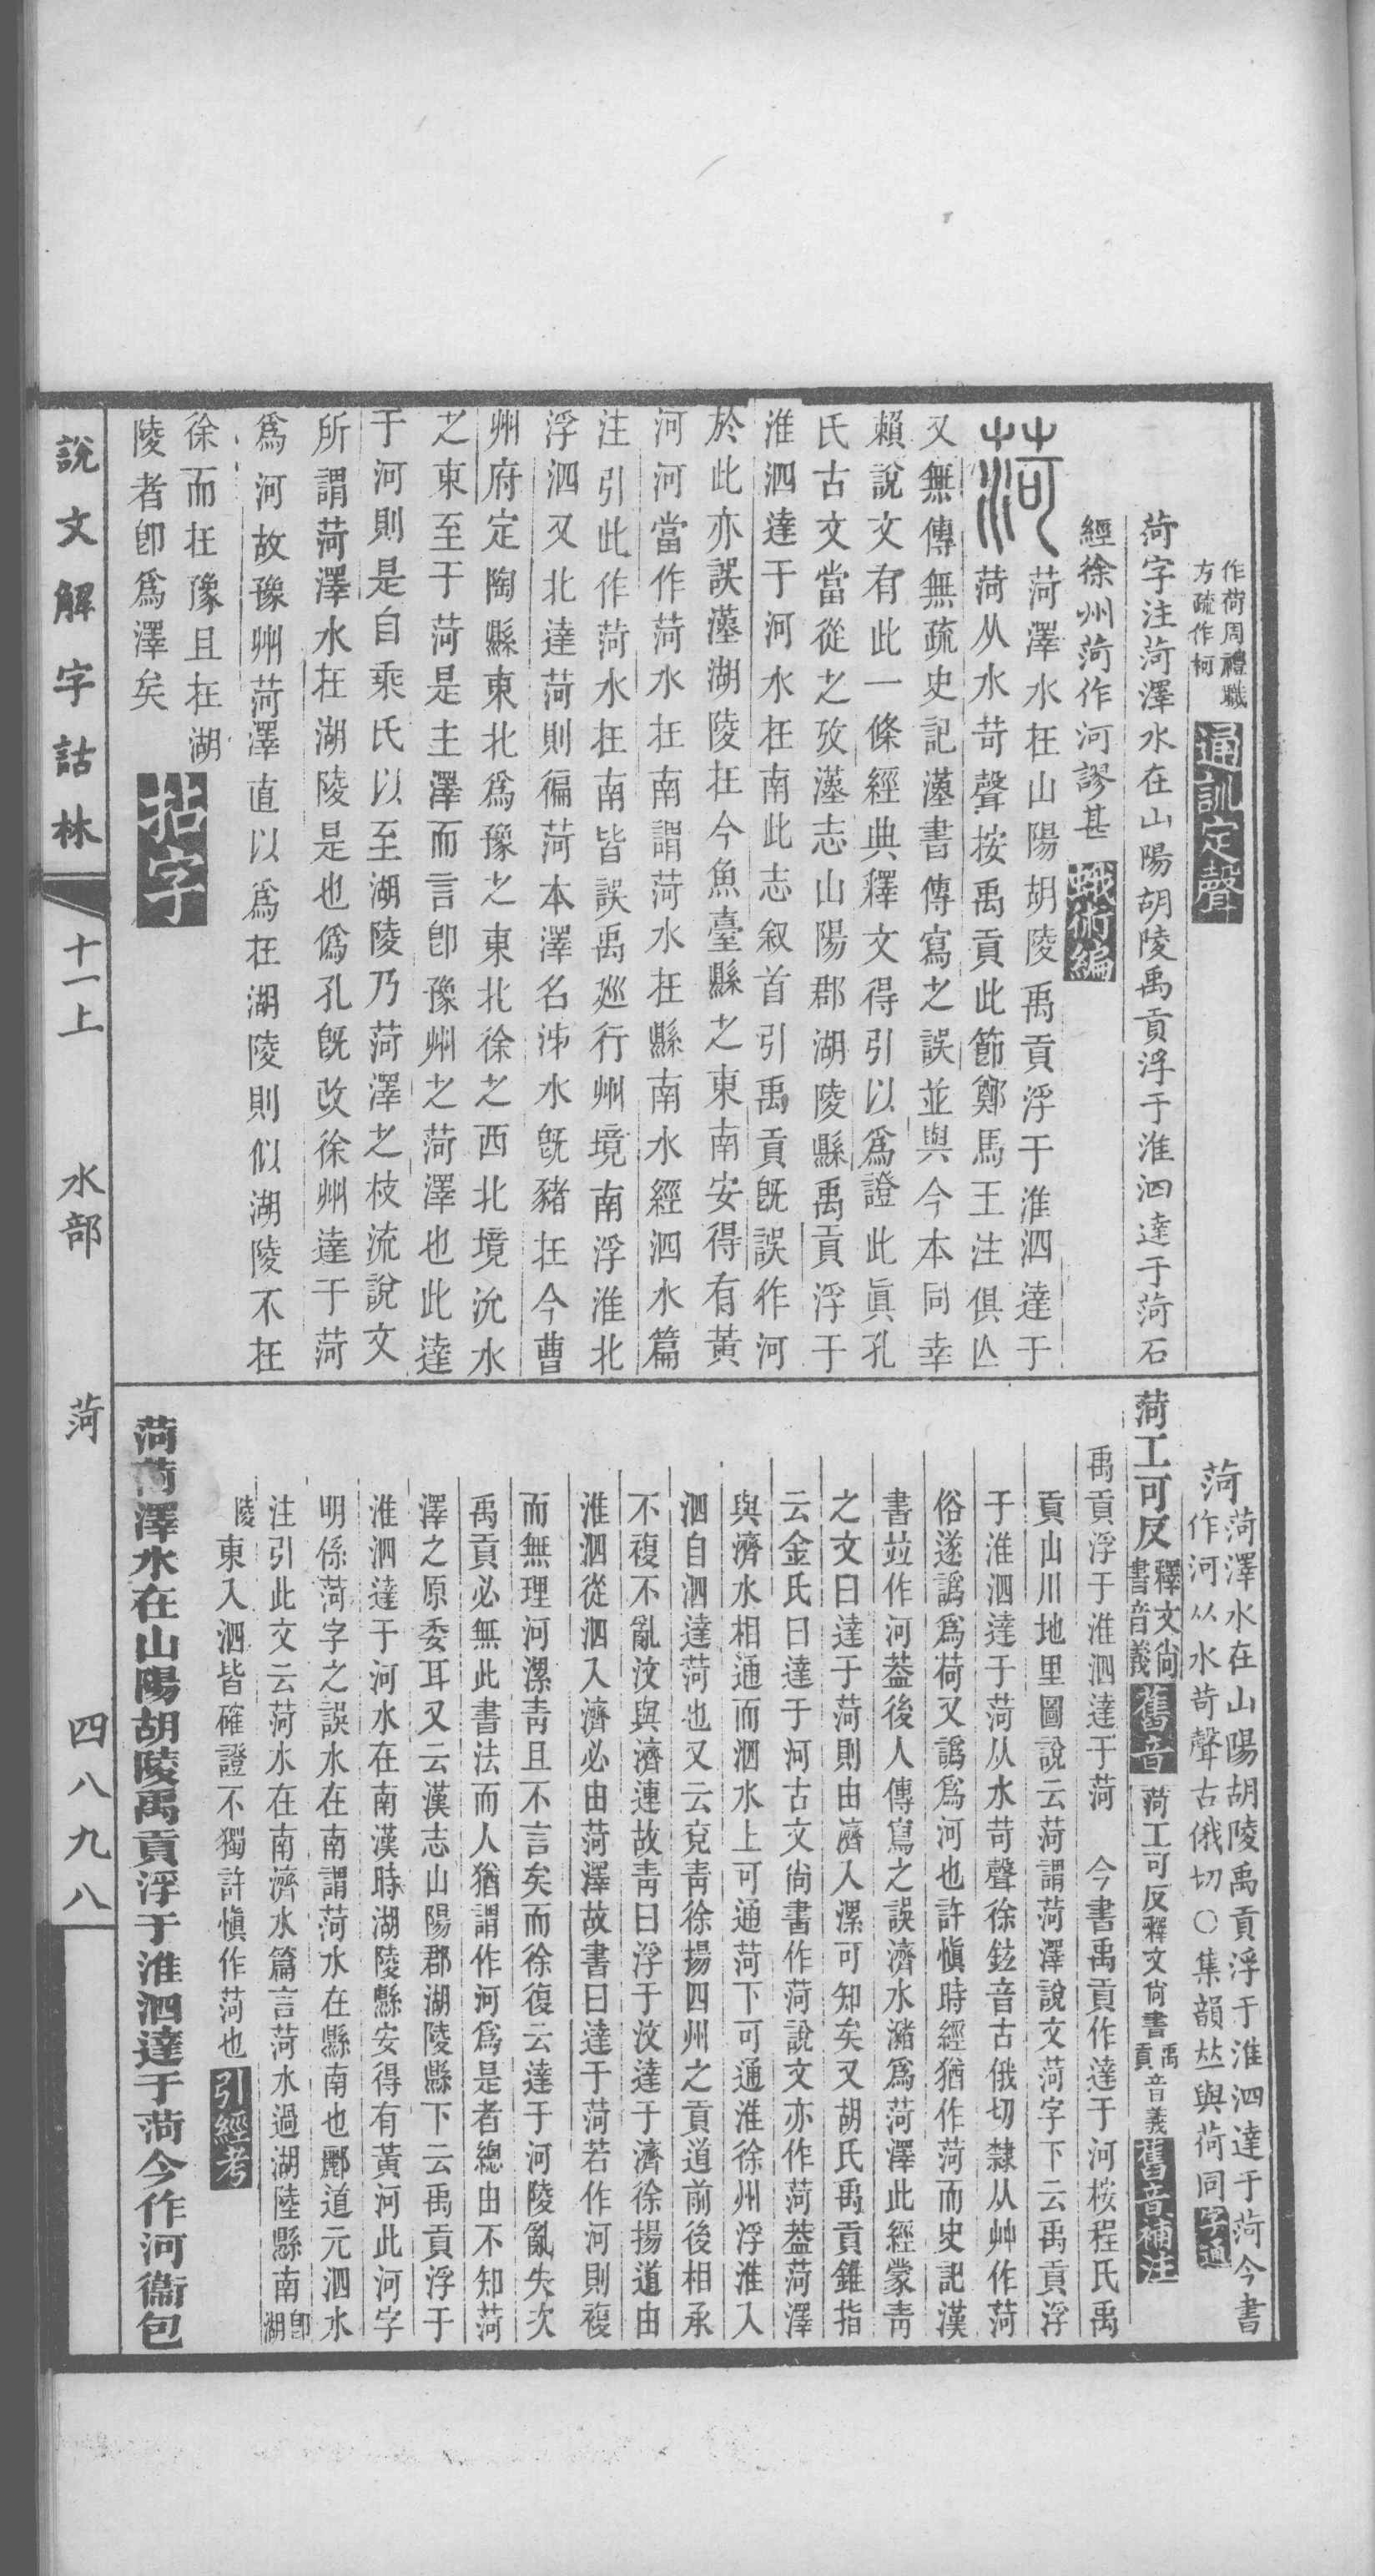 作荷周禮職
方疏作柯
通訓定聲
菏字注菏澤水在山陽胡陵禹貢浮于淮泗達于菏石
經徐州菏作河謬甚
蛾術編
菏
菏澤水在山陽胡陵禹貢浮于淮泗達于
菏从水苛聲按禹貢此節鄭馬王注俱亾
又無傳無疏史記漢書傳寫之誤並與今本同幸
賴說文有此一條經典釋文得引以爲證此眞孔
氏古文當從之攷漢志山陽郡湖陵縣禹貢浮于
淮泗達于河水在南此志叙首引禹貢旣誤作河
於此亦誤漢湖陵在今魚臺縣之東南安得有黃
河河當作菏水在南謂菏水在縣南水經泗水篇
注引此作菏水在南皆誤禹廵行州境南浮淮北
浮泗又北達菏則徧菏本澤名泲水旣豬在今曹
州府定陶縣東北爲豫之東北徐之西北境沇水
之東至于菏是主澤而言卽豫州之菏澤也此達
于河則是自乘氏以至湖陵乃菏澤之枝流說文
所謂菏澤水在湖陵是也僞孔旣改徐州達于菏
爲河故豫州菏澤直以爲在湖陵則似湖陵不在
徐而在豫且在湖
陵者卽爲澤矣
拈字
菏
菏澤水在山陽胡陵禹貢浮于淮泗達于菏今書
作河从水苛聲古俄切○集韻竝與荷同
字通
菏工可反
釋文尙
書音義
舊音
菏工可反釋文尙書
禹
貢
音義
舊音補注
禹貢浮于淮泗達于菏 今書禹貢作達于河桉程氏禹
貢山川地里圖說云菏謂菏澤說文菏字下云禹貢浮
于淮泗達于菏从水苛聲徐鉉音古俄切隸从艸作菏
俗遂譌爲荷又譌爲河也許愼時經猶作菏而史記漢
書竝作河葢後人傳寫之誤濟水瀦爲菏澤此經蒙靑
之文曰達于菏則由濟入漯可知矣又胡氏禹貢錐指
云金氏曰達于河古文尙書作菏說文亦作菏葢菏澤
與濟水相通而泗水上可通菏下可通淮徐州浮淮入
泗自泗達菏也又云兗靑徐揚四州之貢道前後相承
不複不亂汶與濟連故靑曰浮于汶達于濟徐揚道由
淮泗從泗入濟必由菏澤故書曰達于菏若作河則複
而無理河漯靑且不言矣而徐復云達于河陵亂失次
禹貢必無此書法而人猶謂作河爲是者總由不知菏
澤之原委耳又云漢志山陽郡湖陵縣下云禹貢浮于
淮泗達于河水在南漢時湖陵縣安得有黃河此河字
明係菏字之誤水在南謂菏水在縣南也酈道元泗水
注引此文云菏水在南濟水篇言菏水過湖陸縣南
卽
湖
陵
東入泗皆確證不獨許愼作菏也
引經考
菏菏澤水在山陽胡陵禹貢浮于淮泗達于菏今作河衞包
說文解字詁林
十一上
水部
菏
四八九八